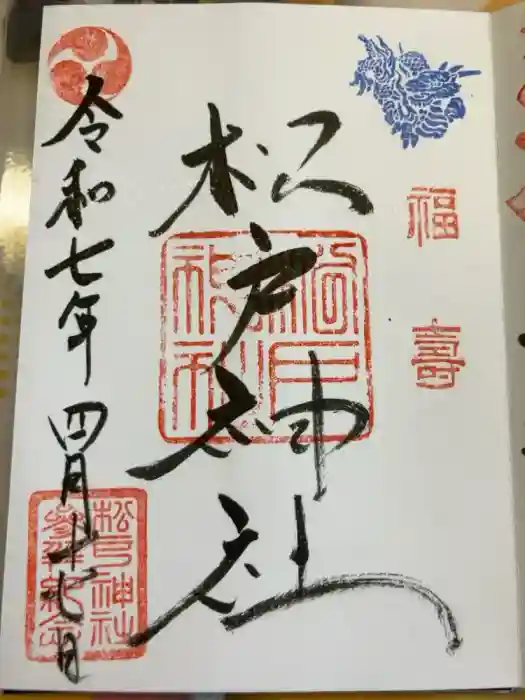 福壽
松戸神社
松戸神社
令和七年四月十七日
松戸神社
参拝紀念